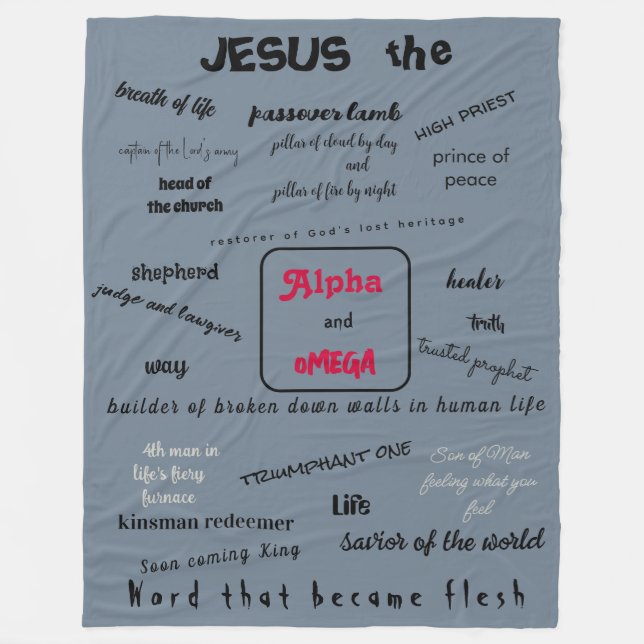 JESUS the
breath of life
passover lamb
HIGH PRIEST
captain of the Lord's army
pillar of cloud by day
and
pillar of fire by night
prince of
peace
head of
the church
restorer of God's lost heritage
shepherd
judge and lawgiver
Alpha
and
oMEGA
healer
truth
trusted prophet
way
builder of broken down walls in human life
4th man in
life's fiery
furnace
TRIUMPHANT ONE
Son of Man
feeling what you
feel
Life
kinsman redeemer
savior of the world
Soon coming King
Word that became flesh